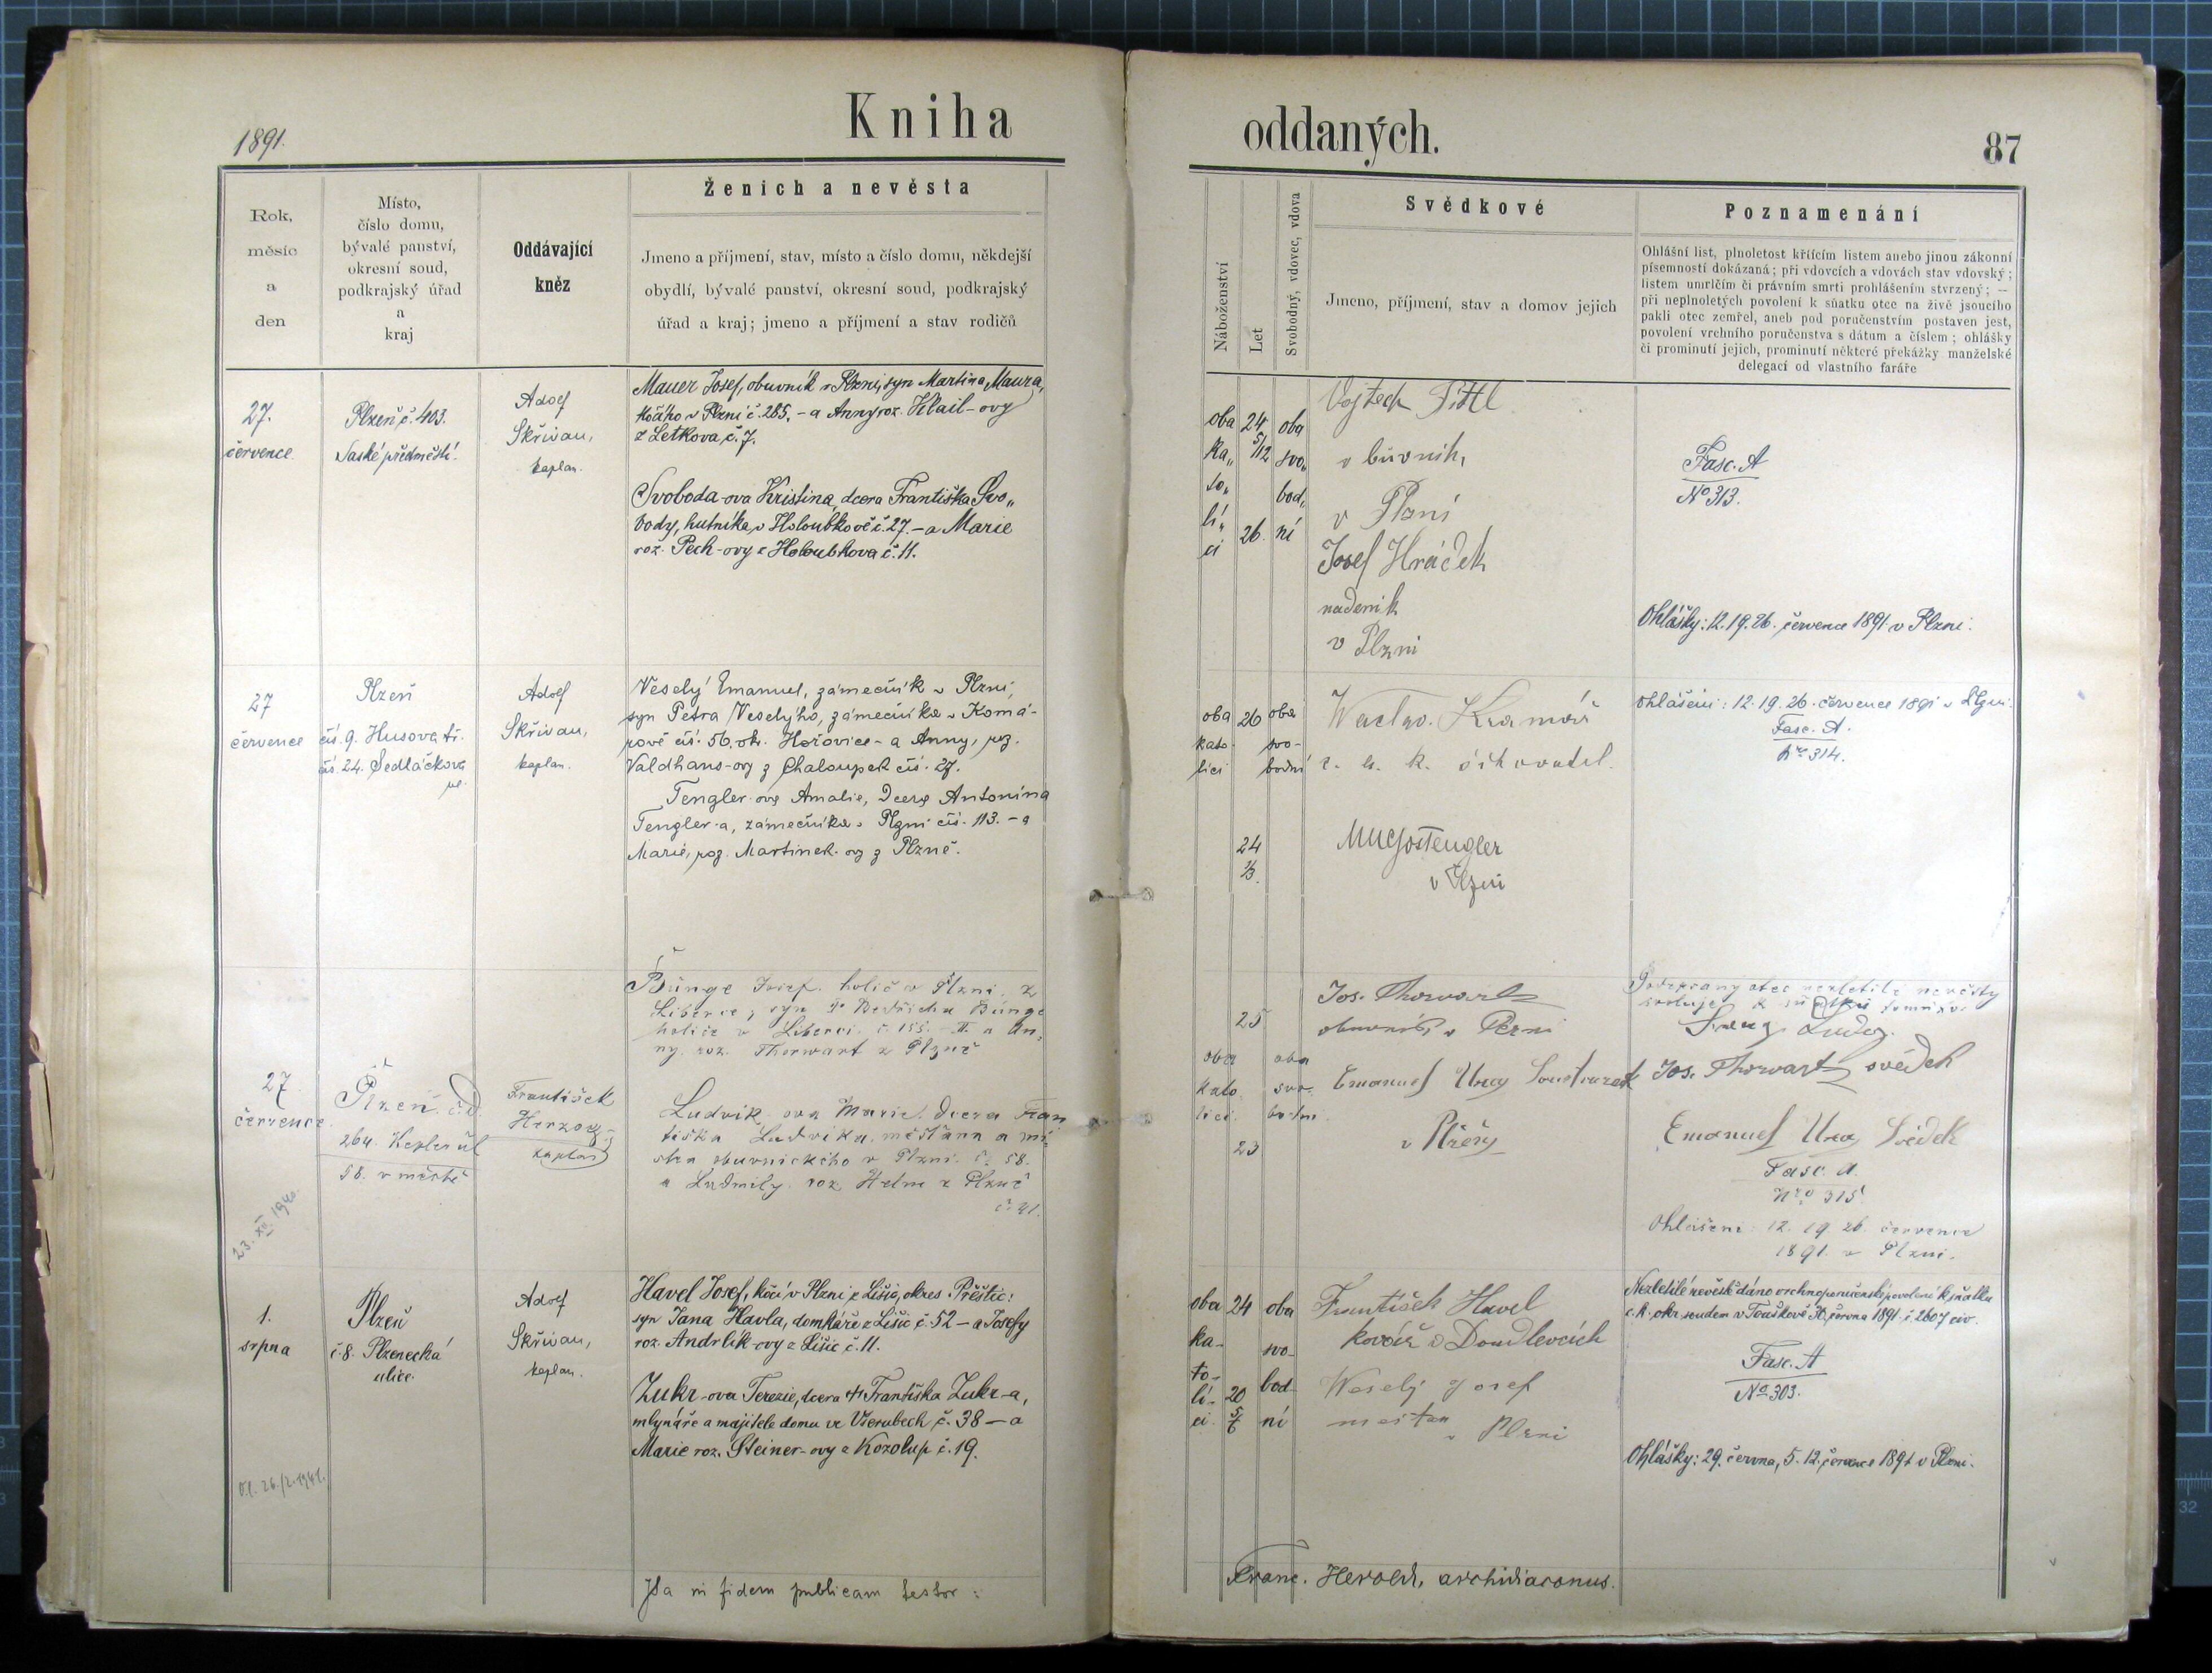 1891.
Kniha
Rok,
měsíc
a
den
Místo,
číslo domu,
bývalé panství,
okresní soud,
podkrajský úřad
a
kraj
Oddávající
kněz
Ženich a nevěsta
Jmeno a příjmení, stav, místo a číslo domu, někdejší
obydlí, bývalé panství, okresní soud, podkrajský
úřad a kraj; jmeno a příjmení a stav rodičů
27.
července
Plzeň č. 403.
Saské předměstí.
Adolf
Skřivan,
kaplan.
Mauer Josef, obuvník v Plzni, syn Martina Maura,
kočího v Plzni č. 285. - a Anny roz. Klail-ovy
z Letkova, č. 7.
Svoboda-ova Kristina, dcera Františka Svo„
body, hutníka, v Holoubkově č. 27. - a Marie
roz. Pech-ovy z Holoubkova č. 11.
27
července
Plzeň
čís. 9. Husova tř.
čís. 24. Sedláčkova
ul.
Adolf
Skřivan,
kaplan.
Veselý Emanuel, zámečník v Plzni,
syn Petra Veselýho, zámečníka v Komá-
rově čís. 56. okr. Hořovice - a Anny, roz.
Valdhans-ovy z Chaloupek čís. 27.
Tengler-ova Amalie, dcera Antonína
Tengler-a, zámečníka v Plzni čís. 113. - a
Marie, roz. Martinek-ovy z Plzně.
27
července
Plzeň č. d.
264. Kepler ul
58. v městě
František
Herzog
kaplan
Bünge Josef. holič v Plzni, z
Liberce, syn Bedřicha Bünge
holiče v Liberci. č. 155. - II a An„
ny roz. Thorwart z Plzně
Ludvík-ova Marie, dcera Fran
tiška Ludvíka, měšťana a mi
stra obuvnického v Plzni. č. 58.
a Ludmily roz Helm z Plzně
č. 41.
23. XII. 1940.
1.
srpna
Plzeň
č. 8. Plzenecká
ulice.
Adolf
Skřivan,
kaplan.
Havel Josef, kočí v Plzni, z Lišic, okres Přeštic:
syn Jana Havla, domkáře z Lišic č. 52 - a Josefy
roz. Andrlík-ovy z Lišic, č. 11.
Zukr-ova Terezie, dcera † Františka Zukr-a,
mlynáře a majitele domu ve Všerubech č. 38 - a
Marie roz. Steiner-ovy z Kozolup č. 19.
Ita in fidem publicam testor:
oddaných.
87
Náboženství
Let
Svobodný, vdovec, vdova
Svědkové
Jmeno, příjmení, stav a domov jejich
Poznamenání
Ohlášní list, plnoletost křticím listem anebo jinou zákonní
písemností dokázaná; při vdovcích a vdovách stav vdovský;
listem umrlčím či právním smrti prohlášením stvrzený; —
při neplnoletých povolení k sňatku otce na živě jsoucího
pakli otec zemřel, aneb pod poručenstvím postaven jest,
povolení vrchního poručenstva s dátum a číslem; ohlášky
či prominutí jejich, prominutí některé překážky manželské
delegací od vlastního faráře
oba
ka„
to„
lí„
ci
24
5/12
26.
oba
svo„
bod„
ní
Vojtech Pittl
obuvník,
v Plzni
Josef Hráček
nadenik
v Plzni
Fasc. A
No 313.
Ohlášky: 12. 19. 26. července 1891 v Plzni.
oba
kato-
líci
26
24
1/3.
oba
svo-
bodní
Waclav. Kramář
Tengler
v Plzni
Ohlášení: 12. 19. 26. července 1891 v Plzni.
Fasc. A.
Nro 314.
25
oba
kato
líci
23
oba
svo-
bodní
Jos. Thorwart
obuvník v Plzni
Emanuel
v Plzeň
Podepsaný otec nezletilé nevěsty
svoluje k sňatku tomuto.
Jos. Thorwart svědek
Emanuel Svědek
Fasc. A.
Nro 315
Ohlášení: 12. 19. 26. července
1891. v Plzni.
oba
ka-
to-
lí-
ci.
24
20
5/6
oba
svo-
bod-
ní
František Havel
kovář v Doudlevcích
Weselý Josef
mešťan
v Plzni
Nezletilé nevěstě dáno vrchnoporučenské povolení k sňatku
c. k. okr. soudem v Touškově června 1891. č. 2607 civ.
Fasc. A
No 303.
Ohlášky: 29. června, 5. 12. července 1891 v Plzni.
Franc. Herold, archidiaconus.